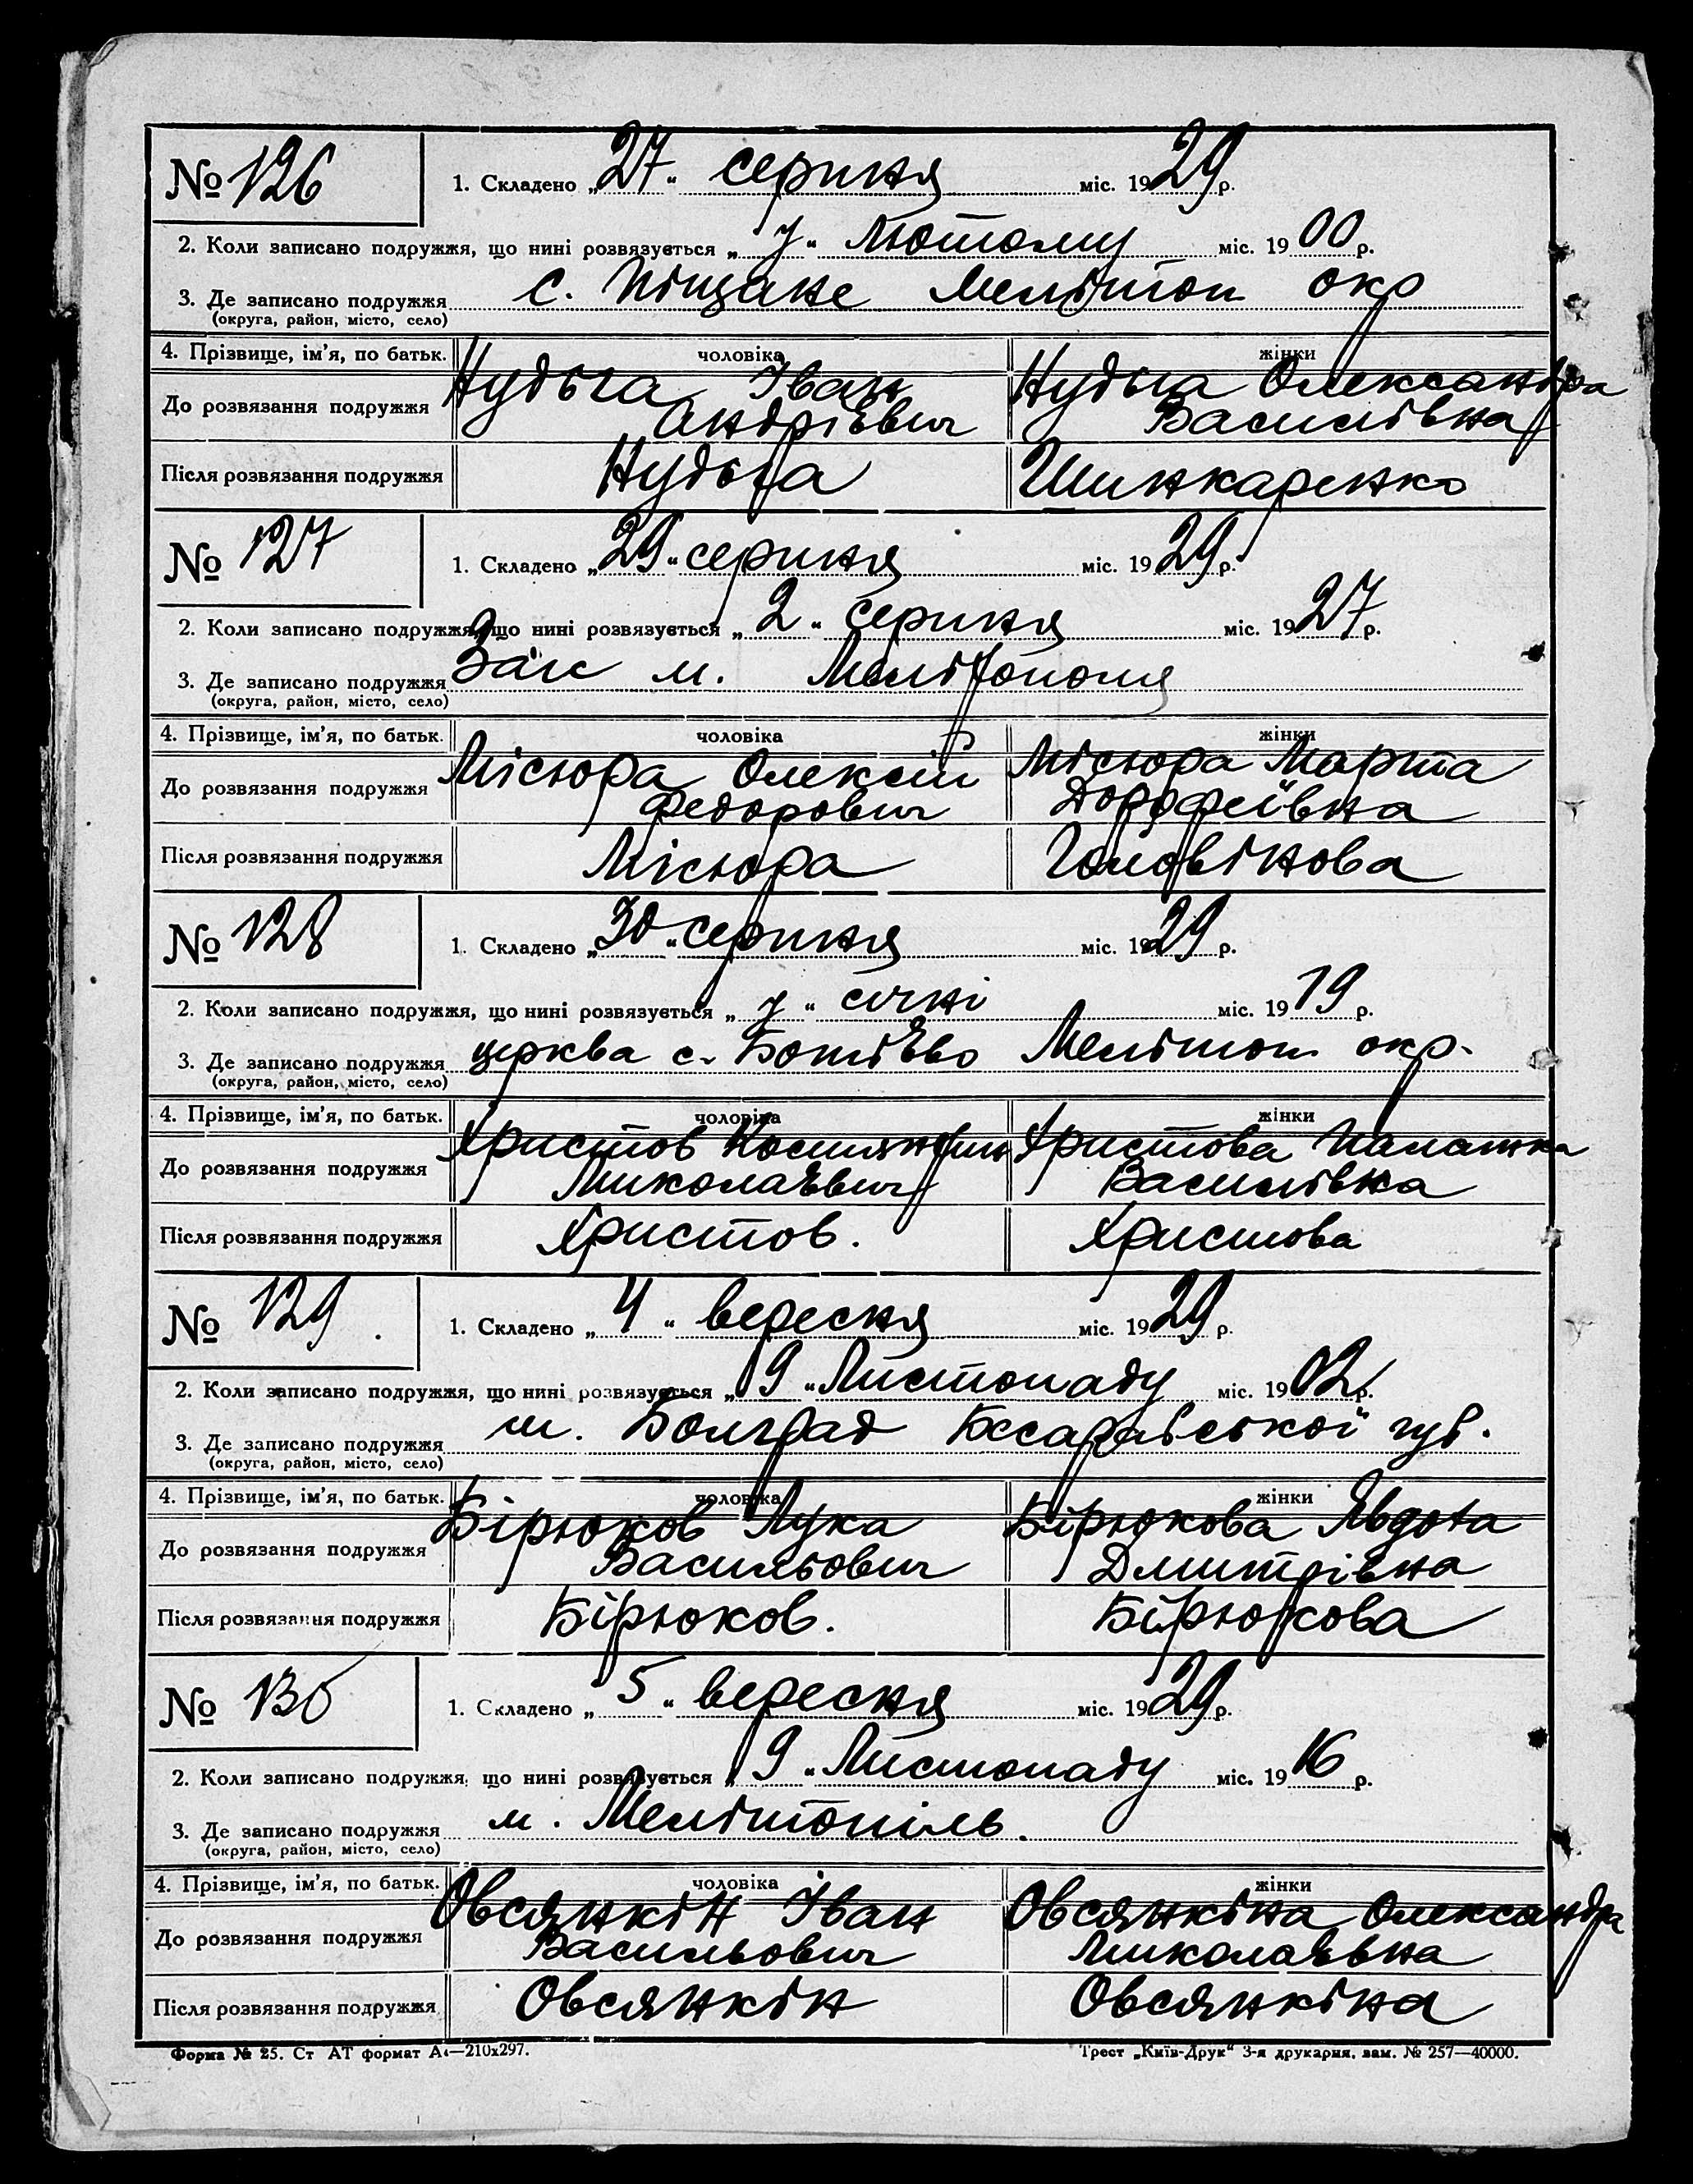 № 126 1. Складено „27“ серпня міс. 1929 р.
2. Коли записано подружжя, що нині розвязується „у“ Лютому міс. 1900 р.
3. Де записано подружжя с. Піщане Мелітоп окр
(округа, район, місто, село)
4. Прізвище, ім’я, по батьк. чоловіка жінки
До розвязання подружжя Нудьга Іван Нудьга Олександра
Андрієвич Василівна
Після розвязання подружжя Нудьга Шинкаренко
№ 127 1. Складено „29“ серпня міс. 1929 р.
2. Коли записано подружжя, що нині розвязується „2“ серпня міс. 1927 р.
3. Де записано подружжя Заґс м. Мелітополя
(округа, район, місто, село)
4. Прізвище, ім’я, по батьк. чоловіка жінки
До розвязання подружжя Місюра Олексій Місюра Марта
Федорович Дорофеївна
Після розвязання подружжя Місюра Головінова
№ 128 1. Складено „30“ серпня міс. 1929 р.
2. Коли записано подружжя, що нині розвязується „у“ січні міс. 1919 р.
3. Де записано подружжя церква с. Ботієво Мелітоп. окр.
(округа, район, місто, село)
4. Прізвище, ім’я, по батьк. чоловіка жінки
До розвязання подружжя Христов Костянтин Христова Палажка
Миколаєвич Василівна
Після розвязання подружжя Христов. Христова
№ 129. 1. Складено „4“ вересня міс. 1929 р.
2. Коли записано подружжя, що нині розвязується „9“ Листопаду міс. 1902 р.
3. Де записано подружжя м. Болград Бесарабської губ.
(округа, район, місто, село)
4. Прізвище, ім’я, по батьк. чоловіка жінки
До розвязання подружжя Бірюков Лука Бірюкова Явдота
Васильович Дмитрівна
Після розвязання подружжя Бірюков. Бірюкова
№ 130 1. Складено „5“ вересня міс. 1929 р.
2. Коли записано подружжя, що нині розвязується „9“ Листопаду міс. 1916 р.
3. Де записано подружжя м. Мелітопіль.
(округа, район, місто, село)
4. Прізвище, ім’я, по батьк. чоловіка жінки
До розвязання подружжя Овсянкін Іван Овсянкіна Олександра
Васильович Миколаєвна
Після розвязання подружжя Овсянкін Овсянкіна
Форма № 25. Ст АТ формат А4—210х297. Трест „Київ-Друк“ 3-я друкарня, зам. № 257—40000.